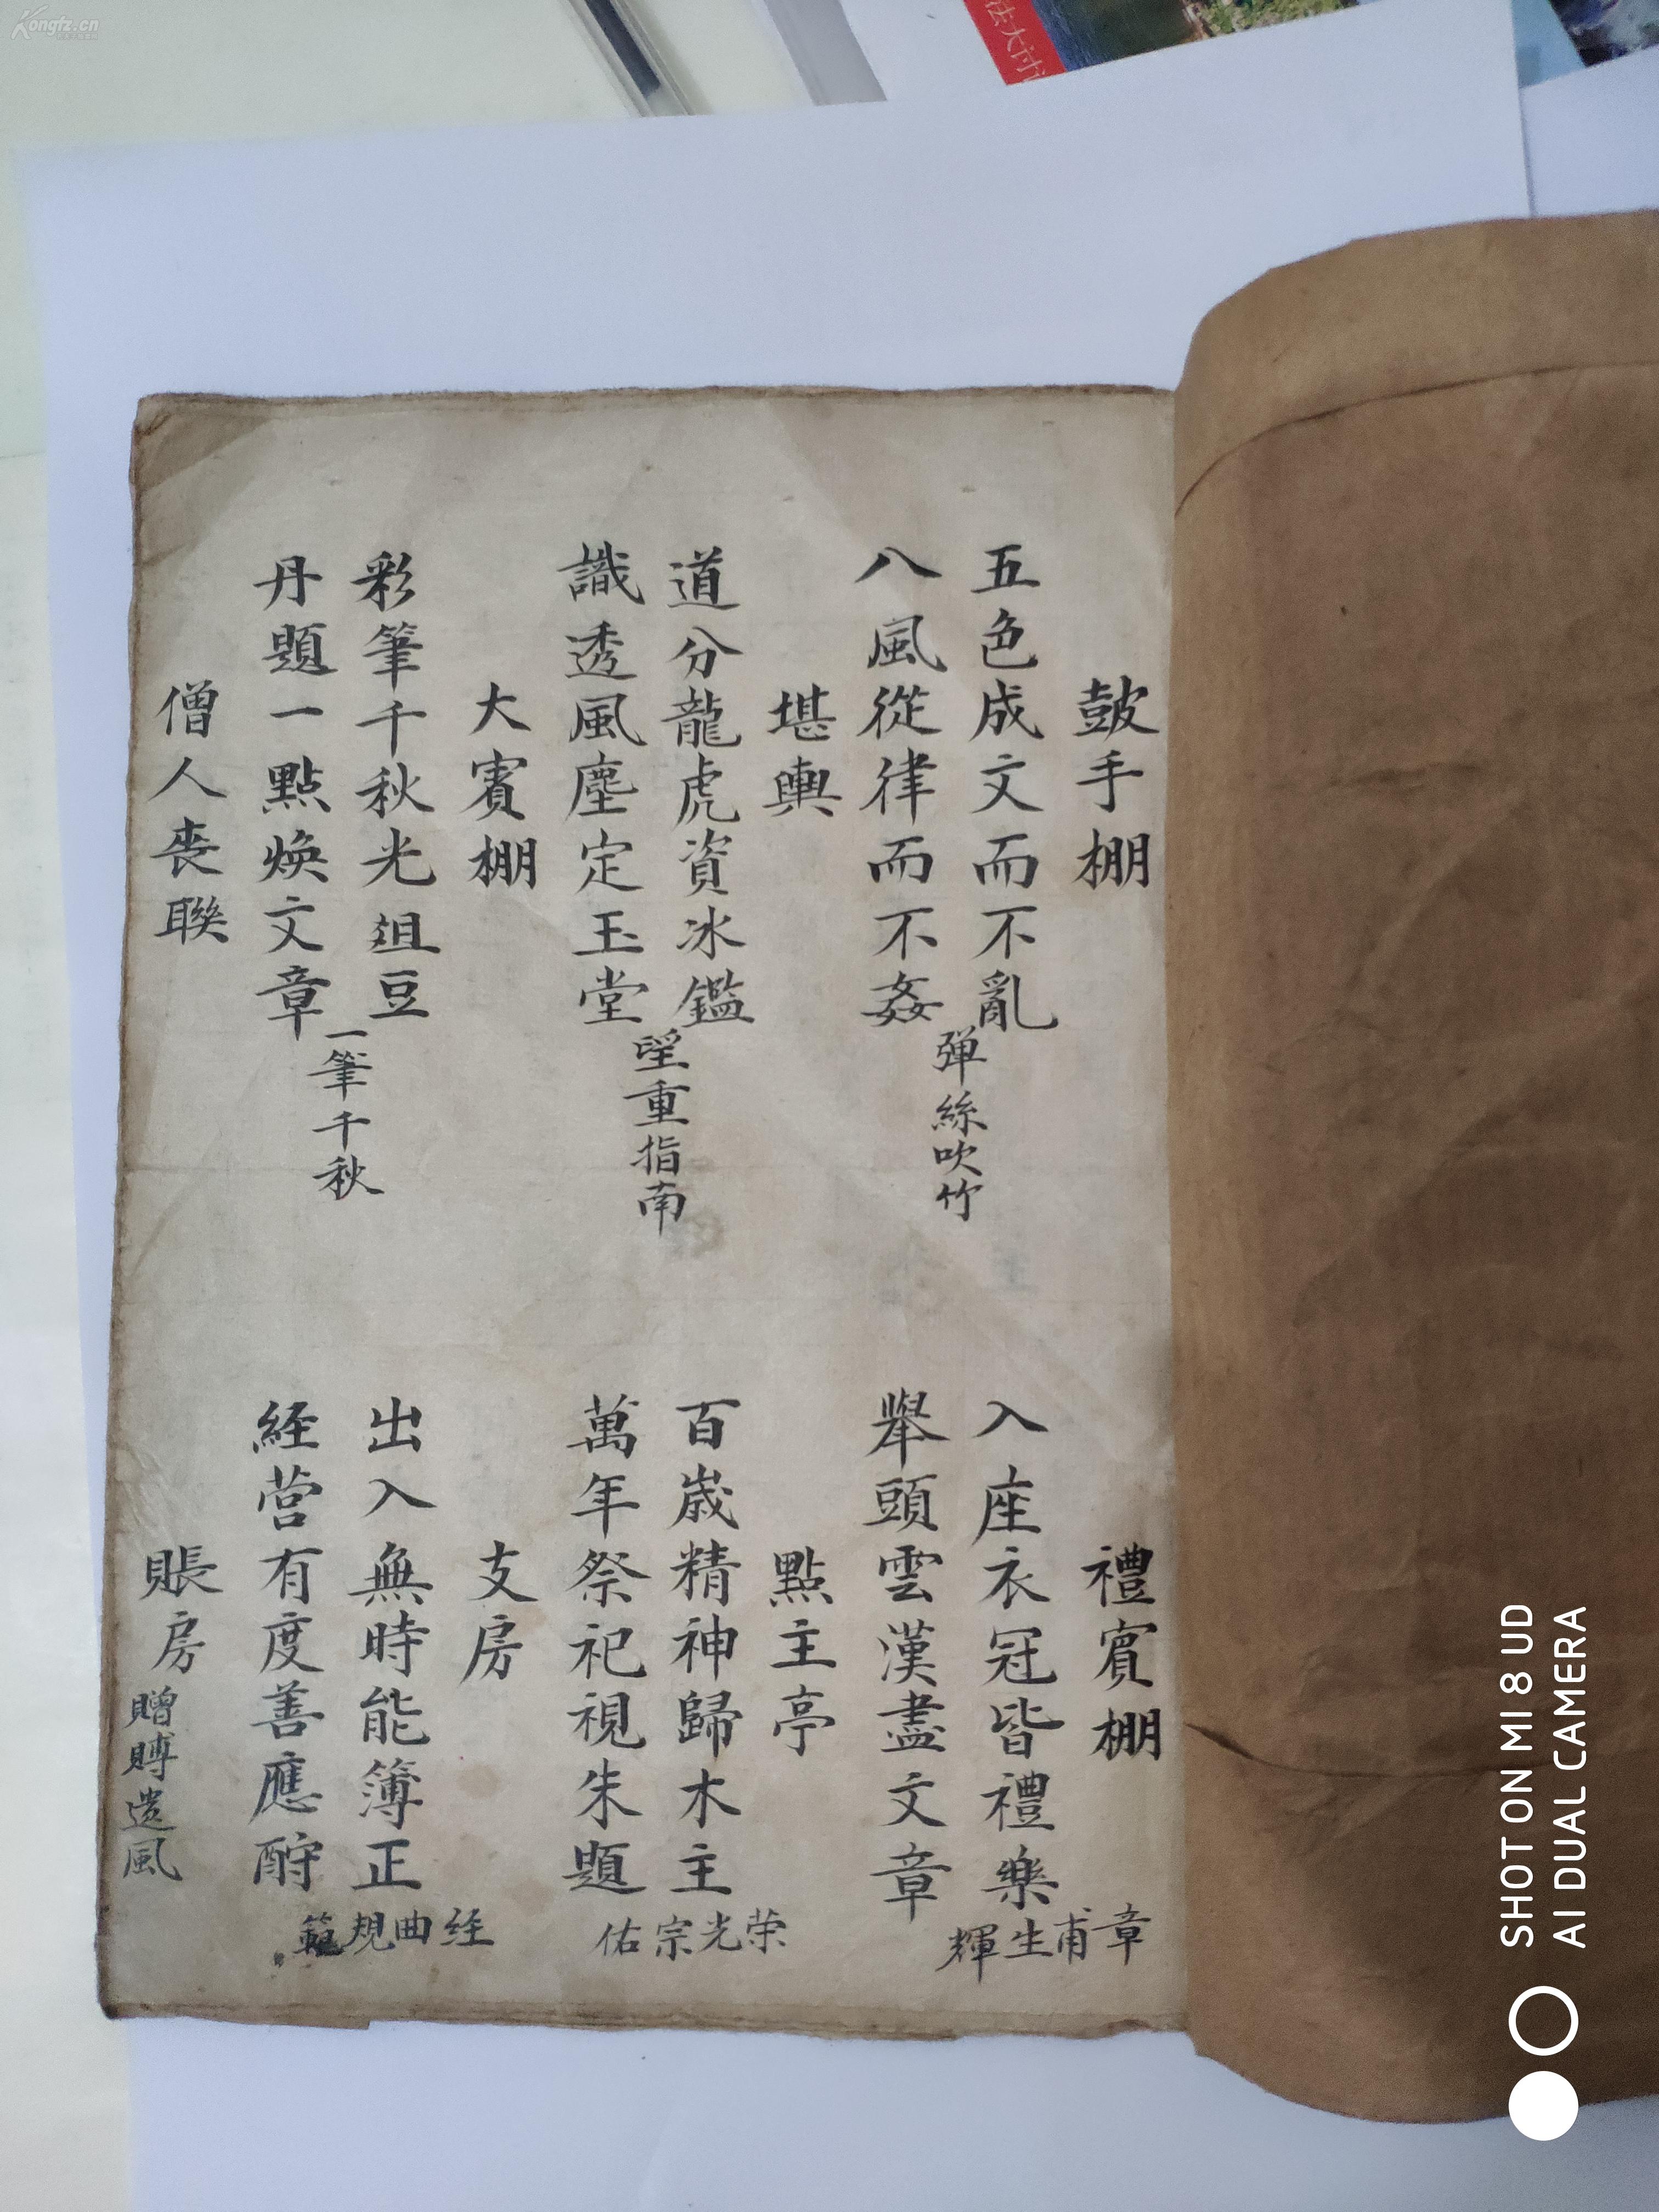 鼓手棚
五色成文而不亂
八風從律而不姦
彈絲吹竹
堪輿
道分龍虎資冰鑑
識透風塵定玉堂
望重指南
大賓棚
彩筆千秋光俎豆
丹題一點煥文章
一筆千秋
僧人喪聯
禮賓棚
入座衣冠皆禮樂
舉頭雲漢盡文章
章甫生輝
點主亭
百歲精神歸木主
萬年祭祀視朱題
荣光宗佑
支房
出入無時能簿正
経营有度善應酧
経曲規範
賬房
贈賻遗風
SHOT ON MI 8 UD
AI DUAL CAMERA
Kongfz.cn
法大讨